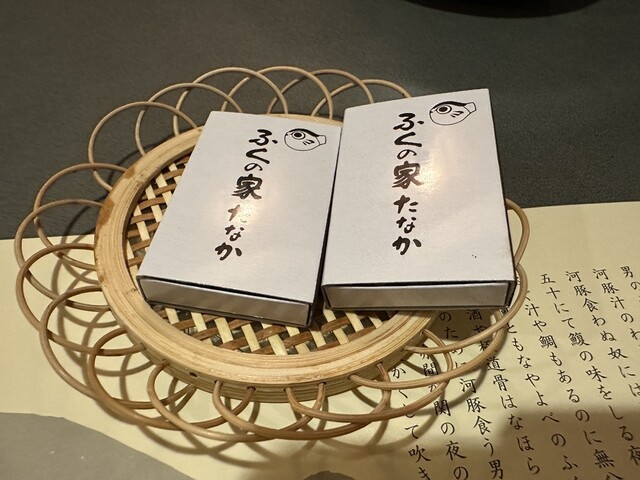 ふくの家 たなか
ふくの家 たなか
男の
河豚汁のわ
河豚食わぬ奴には
五十にて鰒の味をしる夜
汁や鯛もあるのに無分
ともなやよべのふ
道骨はなほら
河豚食う男
関の夜の
かくして吹き